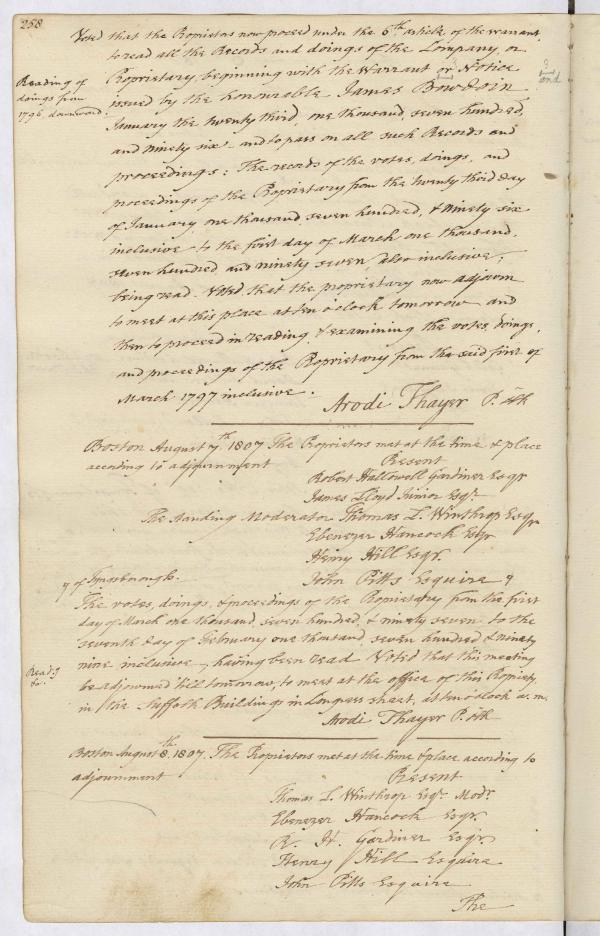 258
Voted that the Proprietors now proceed under the 6th article of the warrant,
to read all the Records and doings of the Company, or
Proprietary beginning with the Warrant or Notice
issued by the honourable James Bowdoin
January the twenty third, one thousand, seven hundred,
and ninety six and to pass on all such Records and
proceedings: The records of the votes, doings, and
proceedings of the Proprietary from the twenty third day
of January, one thousand, seven hundred, & ninety six
inclusive to the first day of March one thousand,
seven hundred and ninety seven, also inclusive,
being read. Voted that the proprietary now adjourn
to meet at this place at ten o'clock tomorrow and
then to proceed in reading, & examining the votes, doings,
and proceedings of the Proprietary from the said first of
March 1797 inclusive.
Arodi Thayer P. Clk
Reading of
doings from
1796 downward.
and
Boston August 7th 1807 The Proprietors met at the time & place
according to adjournment
Present
Robert Hallowell Gardiner Esqr
James Lloyd Junior Esqr.
The standing Moderator Thomas L. Winthrop Esqr
Ebenezer Hancock Esqr
Henry Hill Esqr.
John Pitts Esquire
of Tyngsborough.
The votes, doings, & proceedings of the Proprietary from the first
day of March one thousand, seven hundred, & ninety seven to the
seventh day of February one thousand seven hundred & ninety
nine inclusive, having been read Voted that this meeting
be adjourned till tomorrow, to meet at the office of this Propriety,
in the Suffolk Buildings in Congress street, at ten o'clock a.m.
Arodi Thayer P. Clk
Readg
&c.
Boston August 8th 1807. The Proprietors met at the time & place according to
adjournment
Present
Thomas L. Winthrop Esqr Modr.
Ebenezer Hancock Esqr.
R. H. Gardiner Esqr.
Henry Hill Esquire
John Pitts Esquire
The